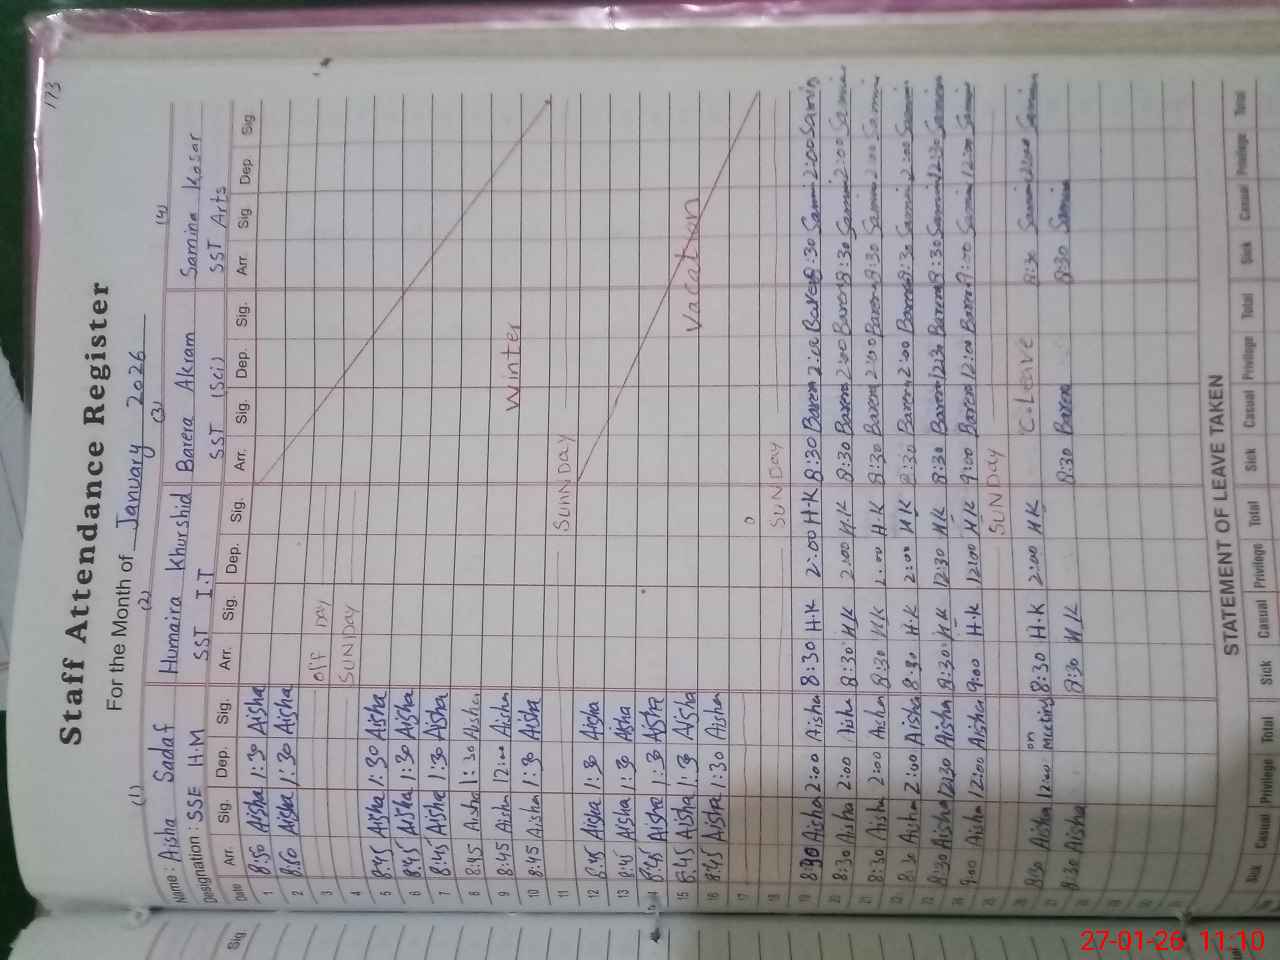 173
Staff Attendance Register
For the Month of January 2026
(1) (2) (3) (4)
Name: Aisha Sadaf Humaira Khurshid Barera Akram Samina Kosar
Designation: SSE H.M SST I.T SST (Sci) SST Arts
Date Arr. Sig. Dep. Sig. Arr. Sig. Dep. Sig. Arr. Sig. Dep. Sig. Arr. Sig Dep. Sig
1 8:50 Aisha 1:30 Aisha
2 8:50 Aisha 1:30 Aisha
3 off Day
4 SUNDAY
5 8:45 Aisha 1:30 Aisha
6 8:45 Aisha 1:30 Aisha
7 8:45 Aisha 1:30 Aisha
8 8:45 Aisha 1:30 Aisha
9 8:45 Aisha 12:00 Aisha Winter
10 8:45 Aisha 1:30 Aisha
11 SUNNDAY
12 8:45 Aisha 1:30 Aisha
13 8:45 Aisha 1:30 Aisha
14 8:45 Aisha 1:30 Aisha
15 8:45 Aisha 1:30 Aisha Vacation
16 8:45 Aisha 1:30 Aisha
17
18 SUNDAY
19 8:30 Aisha 2:00 Aisha 8:30 H.K 2:00 H.K 8:30 Barera 2:00 Barera 8:30 Samin 2:00 Samin
20 8:30 Aisha 2:00 Aisha 8:30 H.K 2:00 H.K 8:30 Barera 2:00 Barera 8:30 Samin 2:00 Samin
21 8:30 Aisha 2:00 Aisha 8:30 H.K 2:00 H.K 8:30 Barera 2:00 Barera 8:30 Samin 2:00 Samin
22 8:30 Aisha 2:00 Aisha 8:30 H.K 2:00 H.K 8:30 Barera 2:00 Barera 8:30 Samin 2:00 Samin
23 8:30 Aisha 12:30 Aisha 8:30 H.K 12:30 H.K 8:30 Barera 12:30 Barera 8:30 Samin 12:30 Samin
24 9:00 Aisha 12:00 Aisha 9:00 H.K 12:00 H.K 9:00 Barera 12:00 Barera 9:00 Samin 12:00 Samin
25 SUNDAY
26 8:30 Aisha 12:00 on Meeting 8:30 H.K 2:00 H.K C.Leave 8:30 Samin 2:00 Samin
27 8:30 Aisha 8:30 H.K 8:30 Barera 8:30 Samin
28
29
30
31
STATEMENT OF LEAVE TAKEN
Sick Casual Privilege Total Sick Casual Privilege Total Sick Casual Privilege Total Sick Casual Privilege Total
Sig
27-01-26 11:10